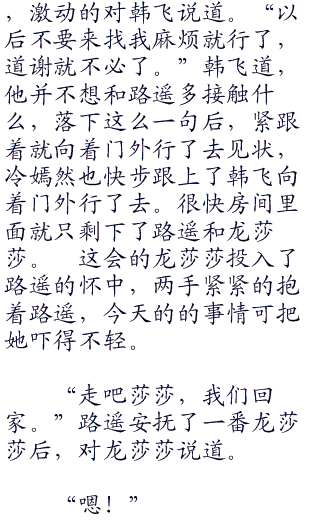 ，激动的对韩飞说道。“以
后不要来找我麻烦就行了，
道谢就不必了。”韩飞道，
他并不想和路遥多接触什
么，落下这么一句后，紧跟
着就向着门外行了去见状，
冷嫣然也快步跟上了韩飞向
着门外行了去。很快房间里
面就只剩下了路遥和龙莎
莎。　这会的龙莎莎投入了
路遥的怀中，两手紧紧的抱
着路遥，今天的的事情可把
她吓得不轻。
“走吧莎莎，我们回
家。”路遥安抚了一番龙莎
莎后，对龙莎莎说道。
“嗯！”